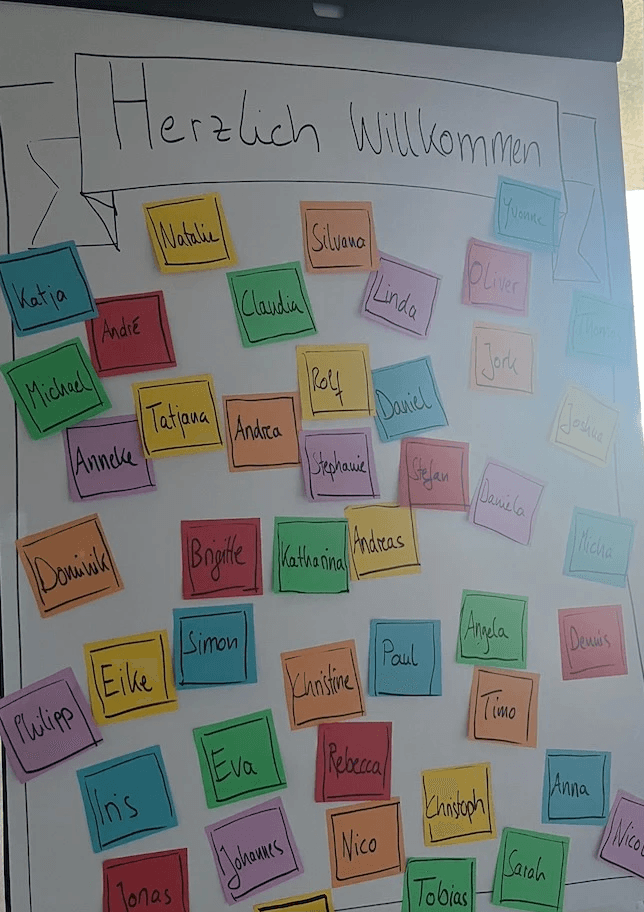 Herzlich Willkommen
Natalie
Silvana
Yvonne
Katja
André
Claudia
Linda
Oliver
Thomas
Michael
Tatjana
Andrea
Rolf
Daniel
Jork
Joshua
Anneke
Stephanie
Stefan
Daniela
Dominik
Brigitte
Katharina
Andreas
Micha
Eike
Simon
Christine
Paul
Angela
Dennis
Philipp
Timo
Iris
Eva
Rebecca
Christoph
Anna
Johannes
Nico
Sarah
Jonas
Tobias